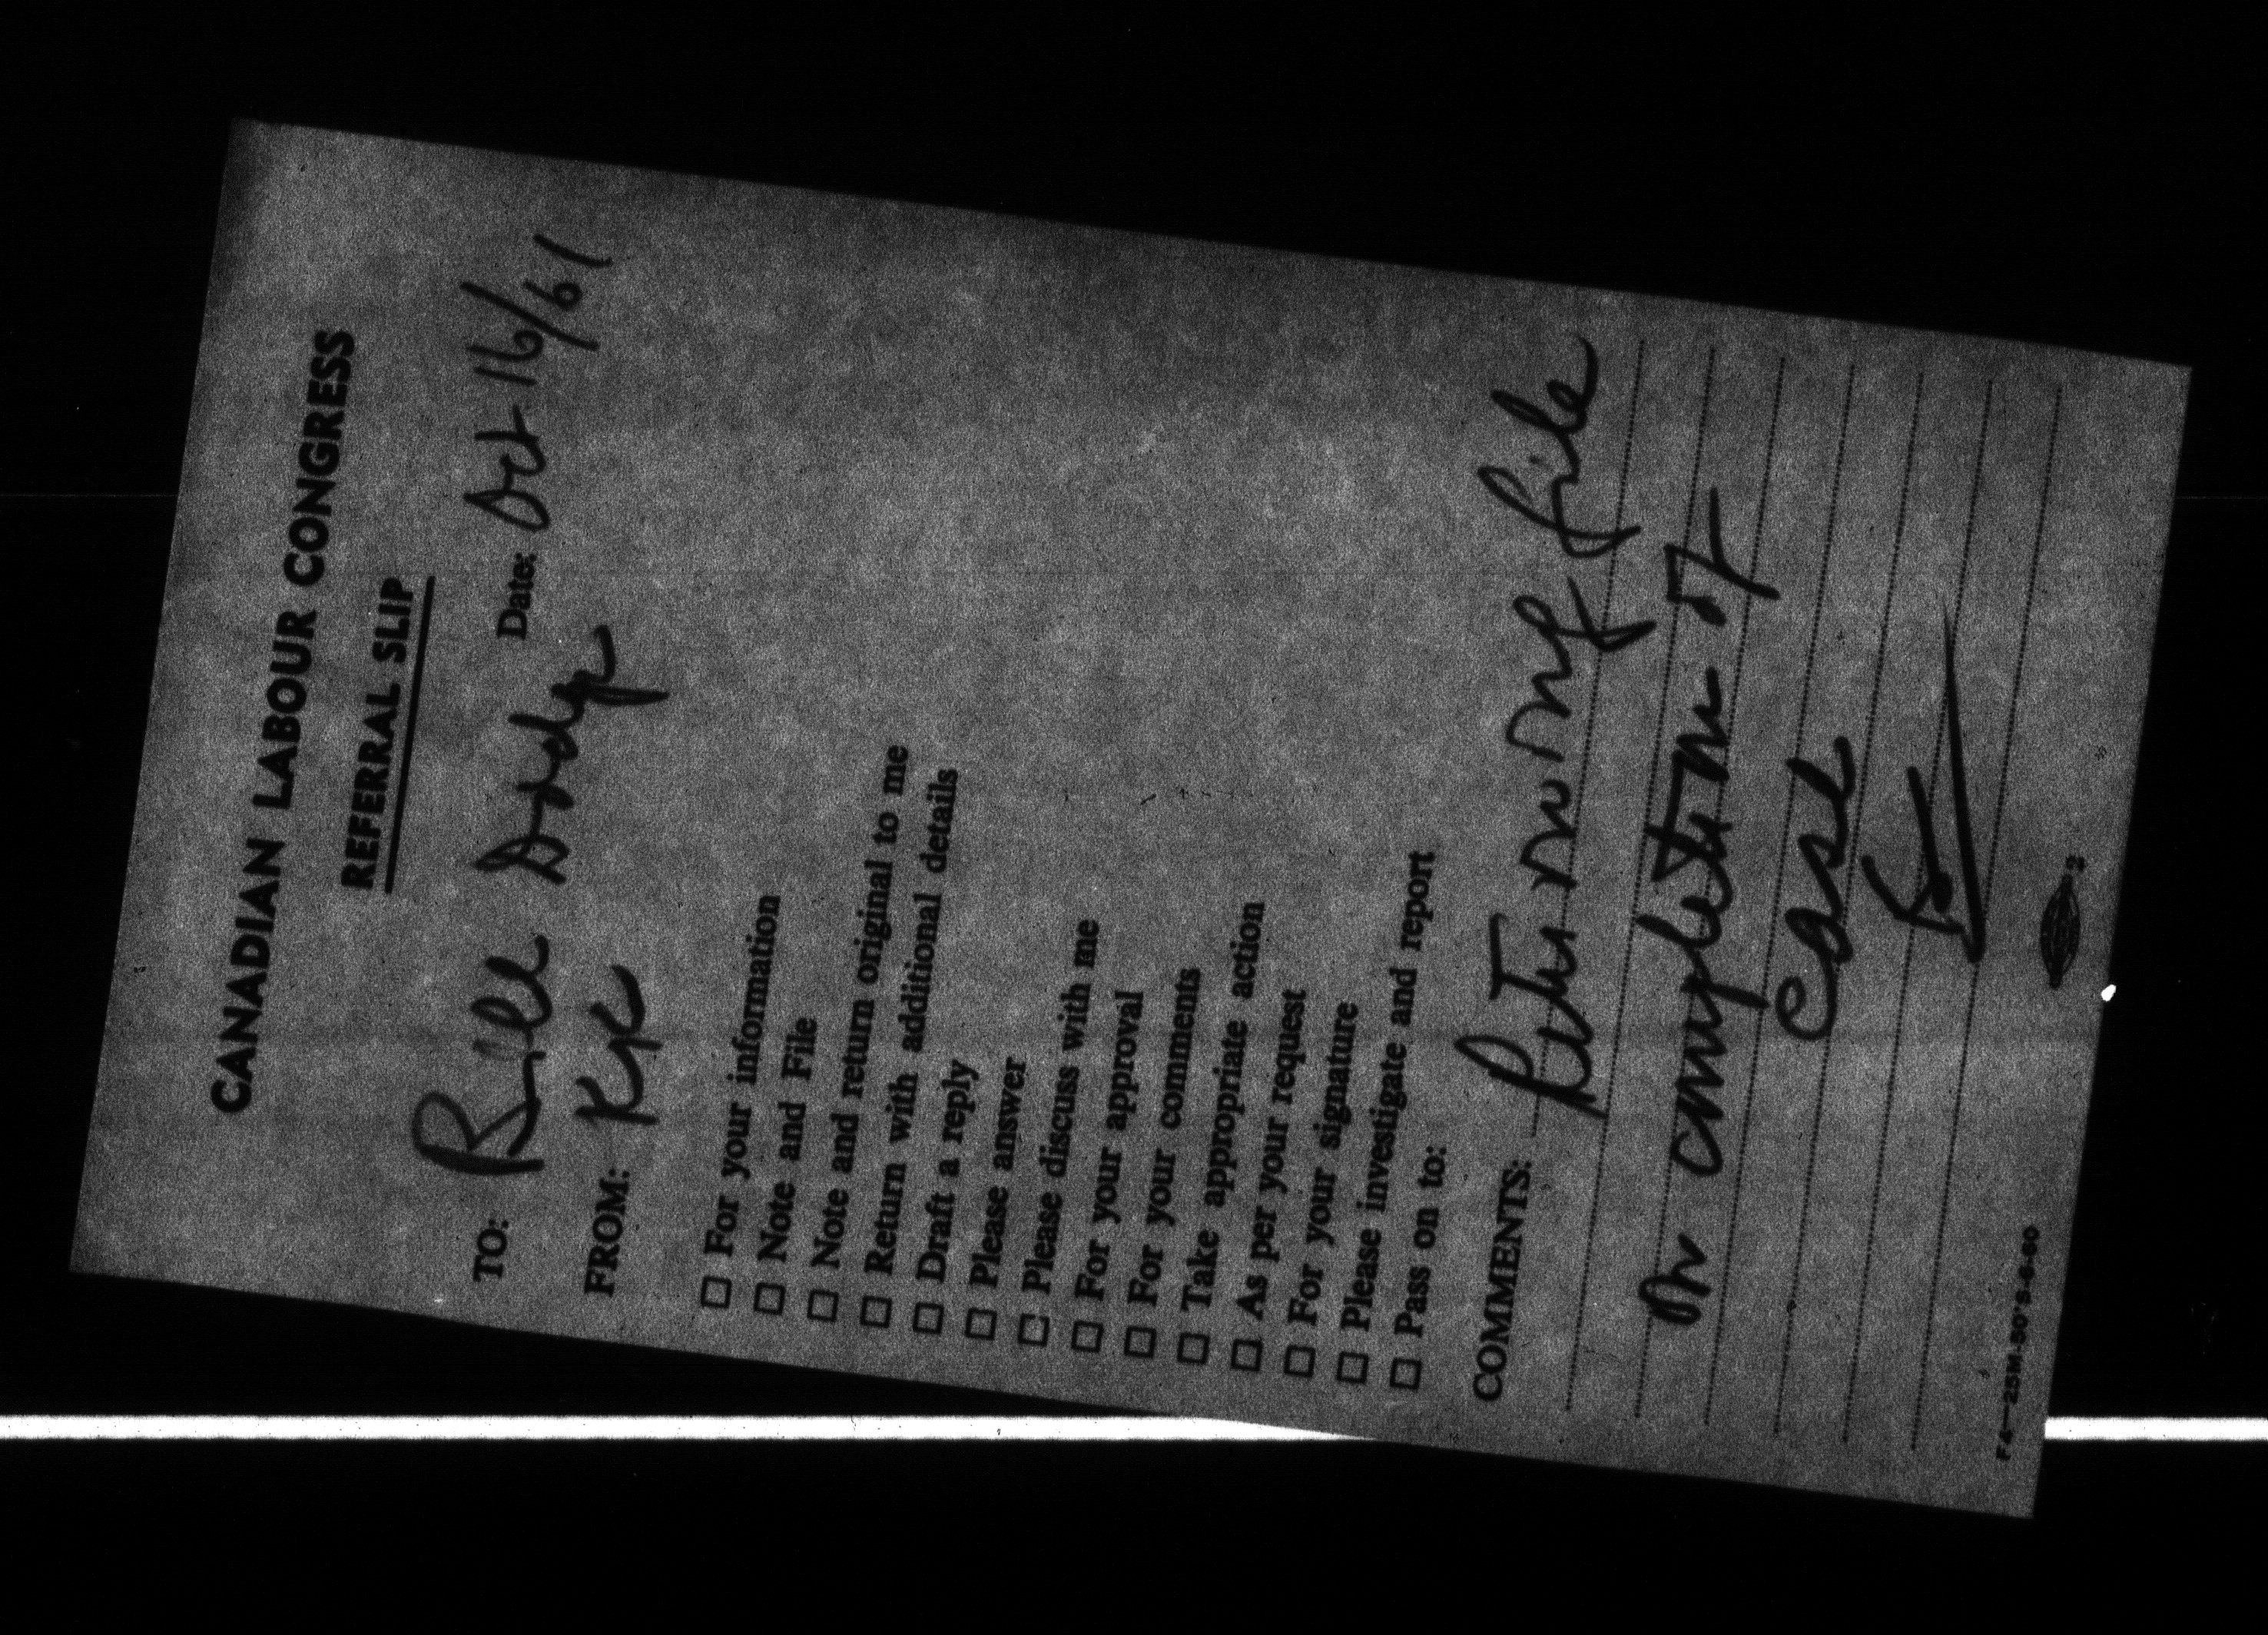 CANADIAN LABOUR CONGRESS
REFERRAL SLIP
TO: Bill Dodge Date: Oct 16/61
FROM:
☐ For your information
☐ Note and File
☐ Note and return original to me
☐ Return with additional details
☐ Draft a reply
☐ Please answer
☐ Please discuss with me
☐ For your approval
☐ For your comments
☐ Take appropriate action
☐ As per your request
☐ For your signature
☐ Please investigate and report
☐ Pass on to:
COMMENTS: Returning file
on completion of
case
2